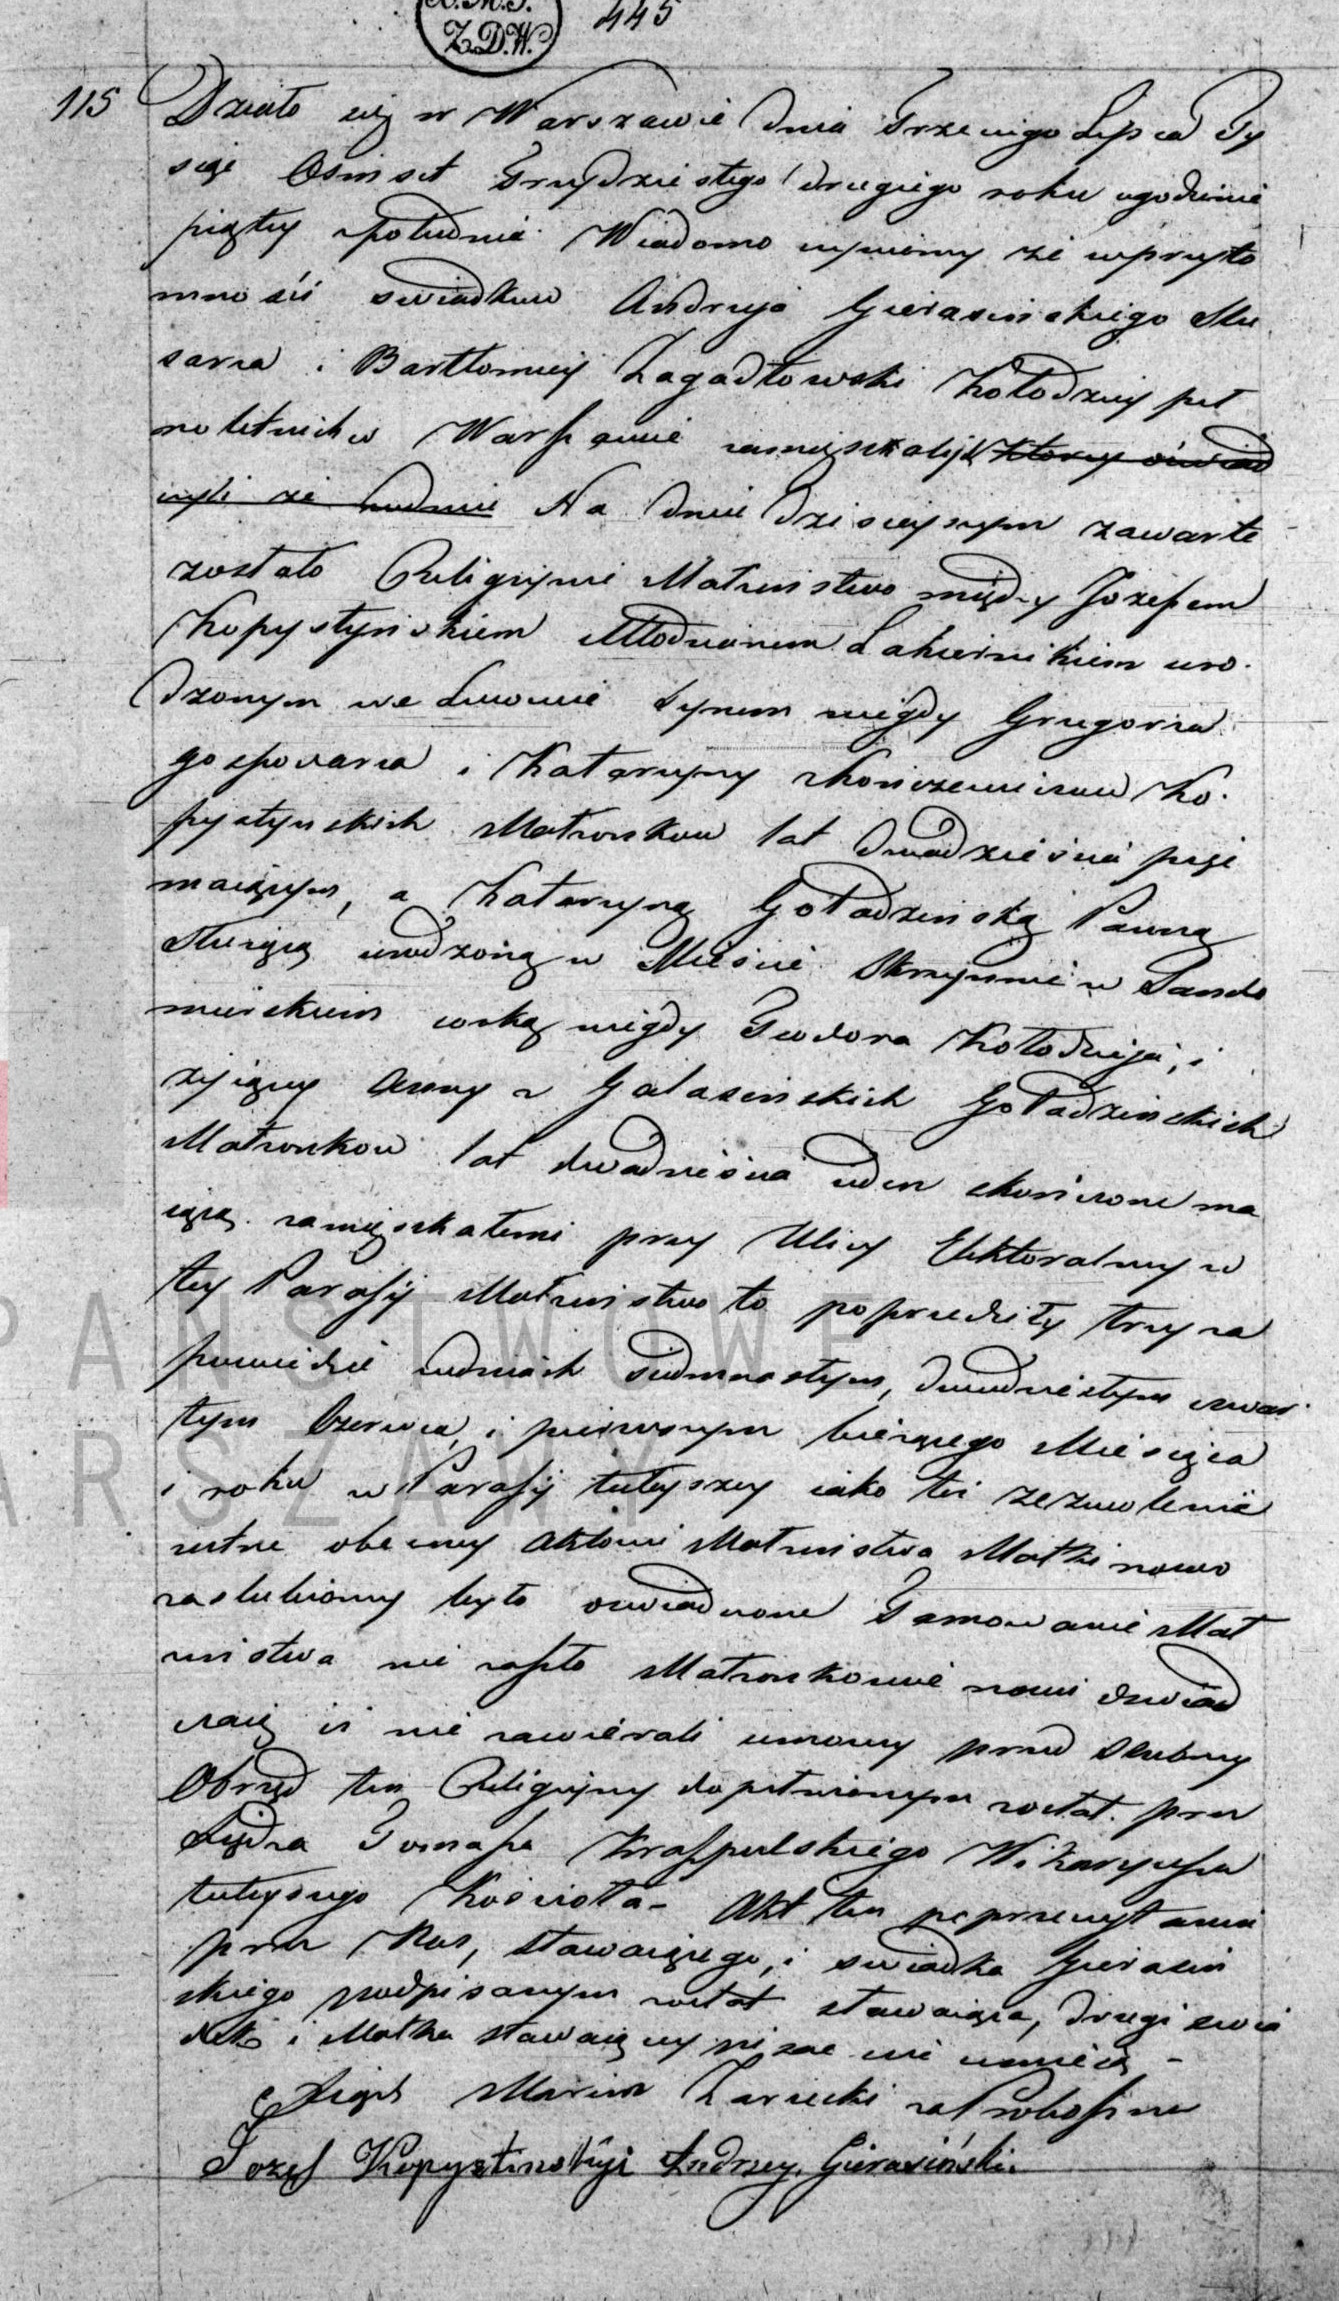 K.M.S.
Z.D.W.
445
115
Działo się w Warszawie dnia Trzeciego Lipca Ty
siąc Osmset Trzydziestego drugiego roku ogodzinie
piątey zpołudnia Wiadomo czyniemy że wprzyto
mności swiadkow Andrzeja Gierasinskiego Slu
sarza i Bartłomiey Zagadłowski Kołodziey peł
noletnich w Warszawie zamięszkałych ktorzy oświad
czyli że wdniu Na dniu dzisieyszym zawarte
zostało Religiyne Małzeństwo między Jozefem
Kopystyńskiem Młodzianem Lakiernikiem uro
dzonym we Lwowie synem niegdy Grzegorza
gospodarza i Katarzyny zKonczewiczow Ko
pystynskich Małzonkow lat dwadzieścia pięć
maiącym, a Katarzyną Goładzinską Panną
Służącą urodzoną w Mieście Skrzynnie w Sando
mierskiem corką niegdy Teodora Kołodzieja, i
żyiący Anny z Galasinskich Goładzinskich
Małzonkow lat dwadzieścia ieden skończone ma
iącą zamięszkałemi przy Ulicy Elektoralney w
tey Parafij Małzeństwo to poprzedziły trzy za
powiedzie wdniach siedmnastym, dwudziestym czwar
tym Czerwca, i pierwszym bieżącego Miesiąca
i roku w Parafij tuteyszey iako też zezwolenie
ustne obecney Aktowi Małzeństwa Matki nowo
zaslubioney było oswiadczone Tamowanie Mał
zeństwa nie zaszło Małzonkowie nowi oswiad
czaią iż nie zawierali umowy przed slubney
Obrzęd ten Religiyny dopełnionym został przez
Xiędza Tomasza Wikaryusza
tuteyszego Kościoła - Akt ten po przeczytaniu
przez Nas, stawaiącego, i swiadka Gierasin
skiego podpisanym został stawaiąca, drugi swia
dek i Matka stawaiącey pisać nie umieią -
Xiądz Marcin Zarzecki za Proboszcza
Jozef Kopystinskyi Andrzey Gierasiński
PAŃSTWOWE
WARSZAWY